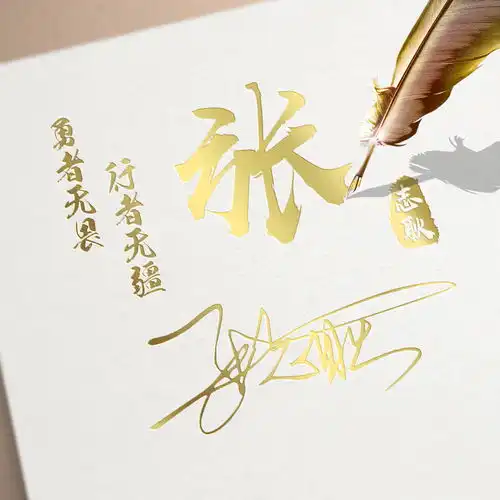 勇者无畏
行者无疆
张
志耿